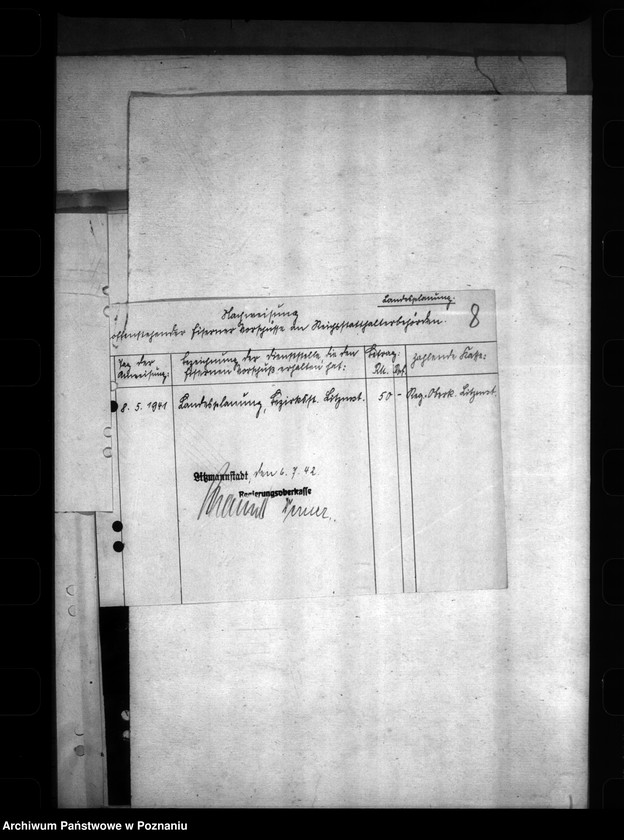 Landesplanung.
8
Nachweisung
offenstehender Eiserner Vorschüsse an Reichsstatthalterbehörden.
Tag der Anweisung:
Bezeichnung der Dienststelle, die den Eisernen Vorschuß erhalten hat:
Betrag:
RM. Rpf.
zahlende Kasse:
8. 5. 1941 Landesplanung, Bezirksst. Litzmst. 50 - Reg. Oberk. Litzmst.
Litzmannstadt, den 6. 7. 42.
Regierungsoberkasse
Archiwum Państwowe w Poznaniu